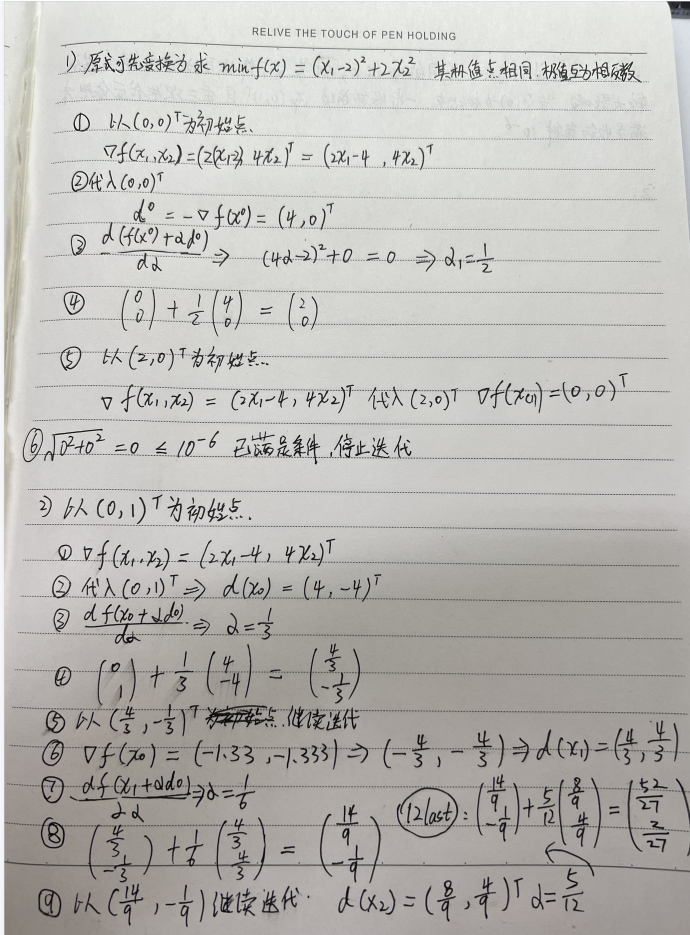 RELIVE THE TOUCH OF PEN HOLDING
1) 原式可先变换为求 min f(x) = (x₁-2)² + 2x₂² 其极值点相同 极值互为相反数
① 以(0,0)ᵀ为初始点.
∇f(x₁,x₂) = (2(x₁-2), 4x₂)ᵀ = (2x₁-4, 4x₂)ᵀ
②代入(0,0)ᵀ
d⁰ = -∇f(x⁰) = (4,0)ᵀ
③ d(f(x⁰)+αd⁰)/dα ⇒ (4α-2)²+0 = 0 ⇒ α₁ = 1/2
④ (0 0) + 1/2 (4 0) = (2 0)
⑤ 以(2,0)ᵀ为初始点.
∇f(x₁,x₂) = (2x₁-4, 4x₂)ᵀ 代入(2,0)ᵀ ∇f(x(1)) = (0,0)ᵀ
⑥ √(0²+0²) = 0 ≤ 10⁻⁶ 已满足条件,停止迭代
2) 以(0,1)ᵀ为初始点.
① ∇f(x₁,x₂) = (2x₁-4, 4x₂)ᵀ
② 代入(0,1)ᵀ ⇒ d(x₀) = (4,-4)ᵀ
③ df(x₀+αd⁰)/dα ⇒ α = 1/3
④ (0 1) + 1/3 (4 -4) = (4/3 -1/3)
⑤ 以(4/3, -1/3)ᵀ 继续迭代
⑥ ∇f(x₀) = (-1.33, -1.333) ⇒ (-4/3, -4/3) ⇒ d(x₁) = (4/3, 4/3)
⑦ df(x₁+αd⁰)/dα ⇒ α = 1/6
⑧ (4/3 -1/3) + 1/6 (4/3 4/3) = (14/9 -1/9)
(12last): (14/9 -1/9) + 5/12 (8/9 4/9) = (52/27 2/27)
⑨ 以(14/9, -1/9)继续迭代. d(x₂) = (8/9, 4/9)ᵀ α = 5/12